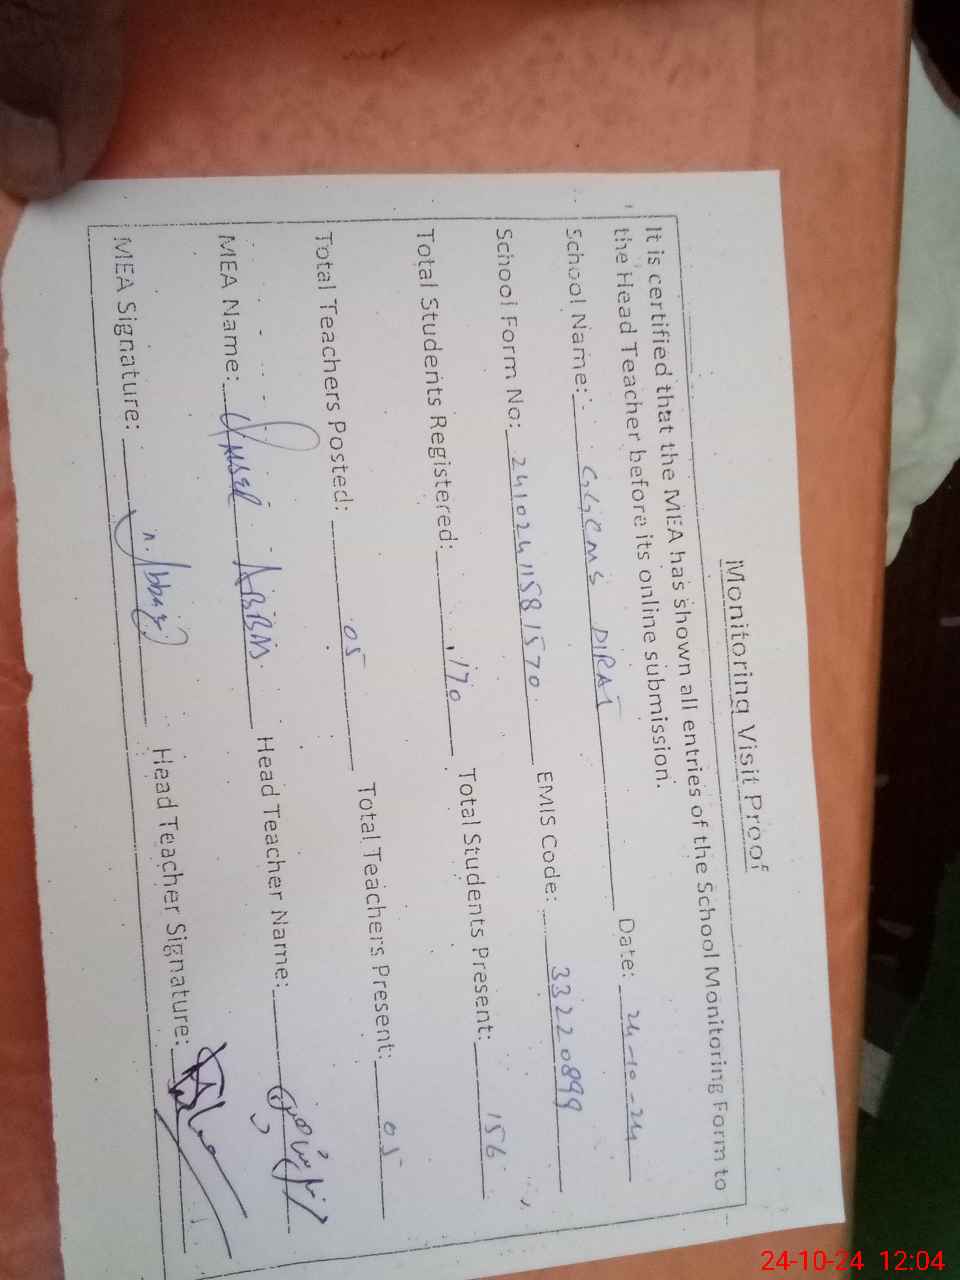 Monitoring Visit Proof
It is certified that the MEA has shown all entries of the School Monitoring Form to
the Head Teacher before its online submission.
School Name: GGCMS DIRAJ Date: 24-10-24
School Form No: 24102411581570 EMIS Code: 33220899
Total Students Registered: 170 Total Students Present: 156
Total Teachers Posted: 05 Total Teachers Present: 05
MEA Name: Head Teacher Name:
MEA Signature: Head Teacher Signature:
24-10-24 12:04